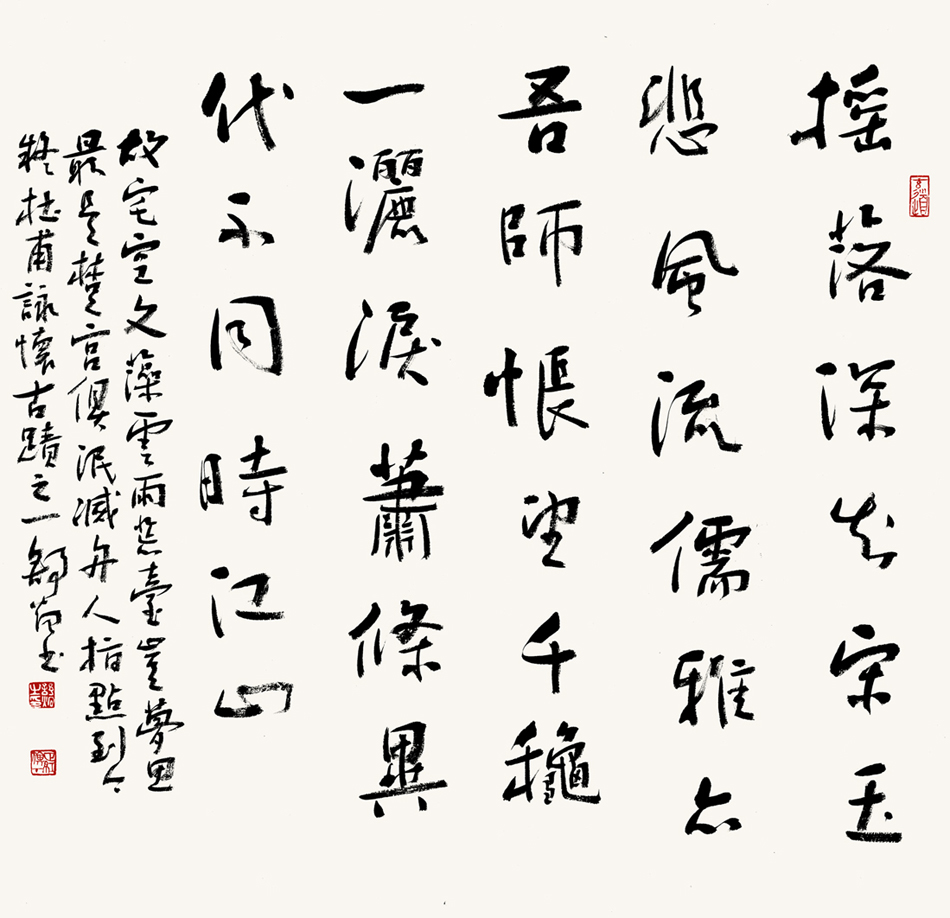 搖落深知宋玉
悲風流儒雅亦
吾師悵望千穐
一灑淚蕭條異
代不同時江山
故宅空文藻雲雨荒臺豈夢思
最是楚宮俱泯滅舟人指點到今
疑杜甫詠懷古蹟之一舒書